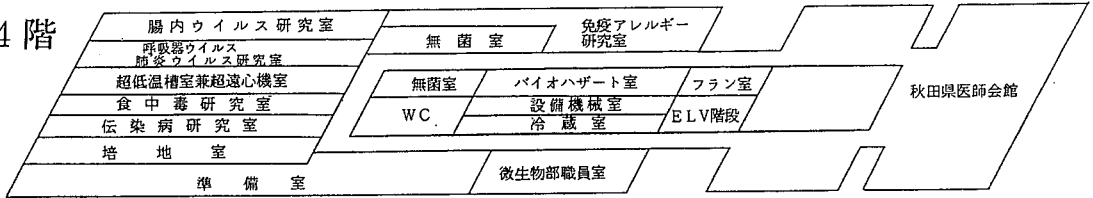 4階
腸内ウイルス研究室
呼吸器ウイルス
肺炎ウイルス研究室
超低温槽室兼超遠心機室
食中毒研究室
伝染病研究室
培地室
準備室
無菌室
免疫アレルギー
研究室
無菌室
バイオハザート室
フラン室
WC.
設備機械室
冷蔵室
ELV階段
微生物部職員室
秋田県医師会館